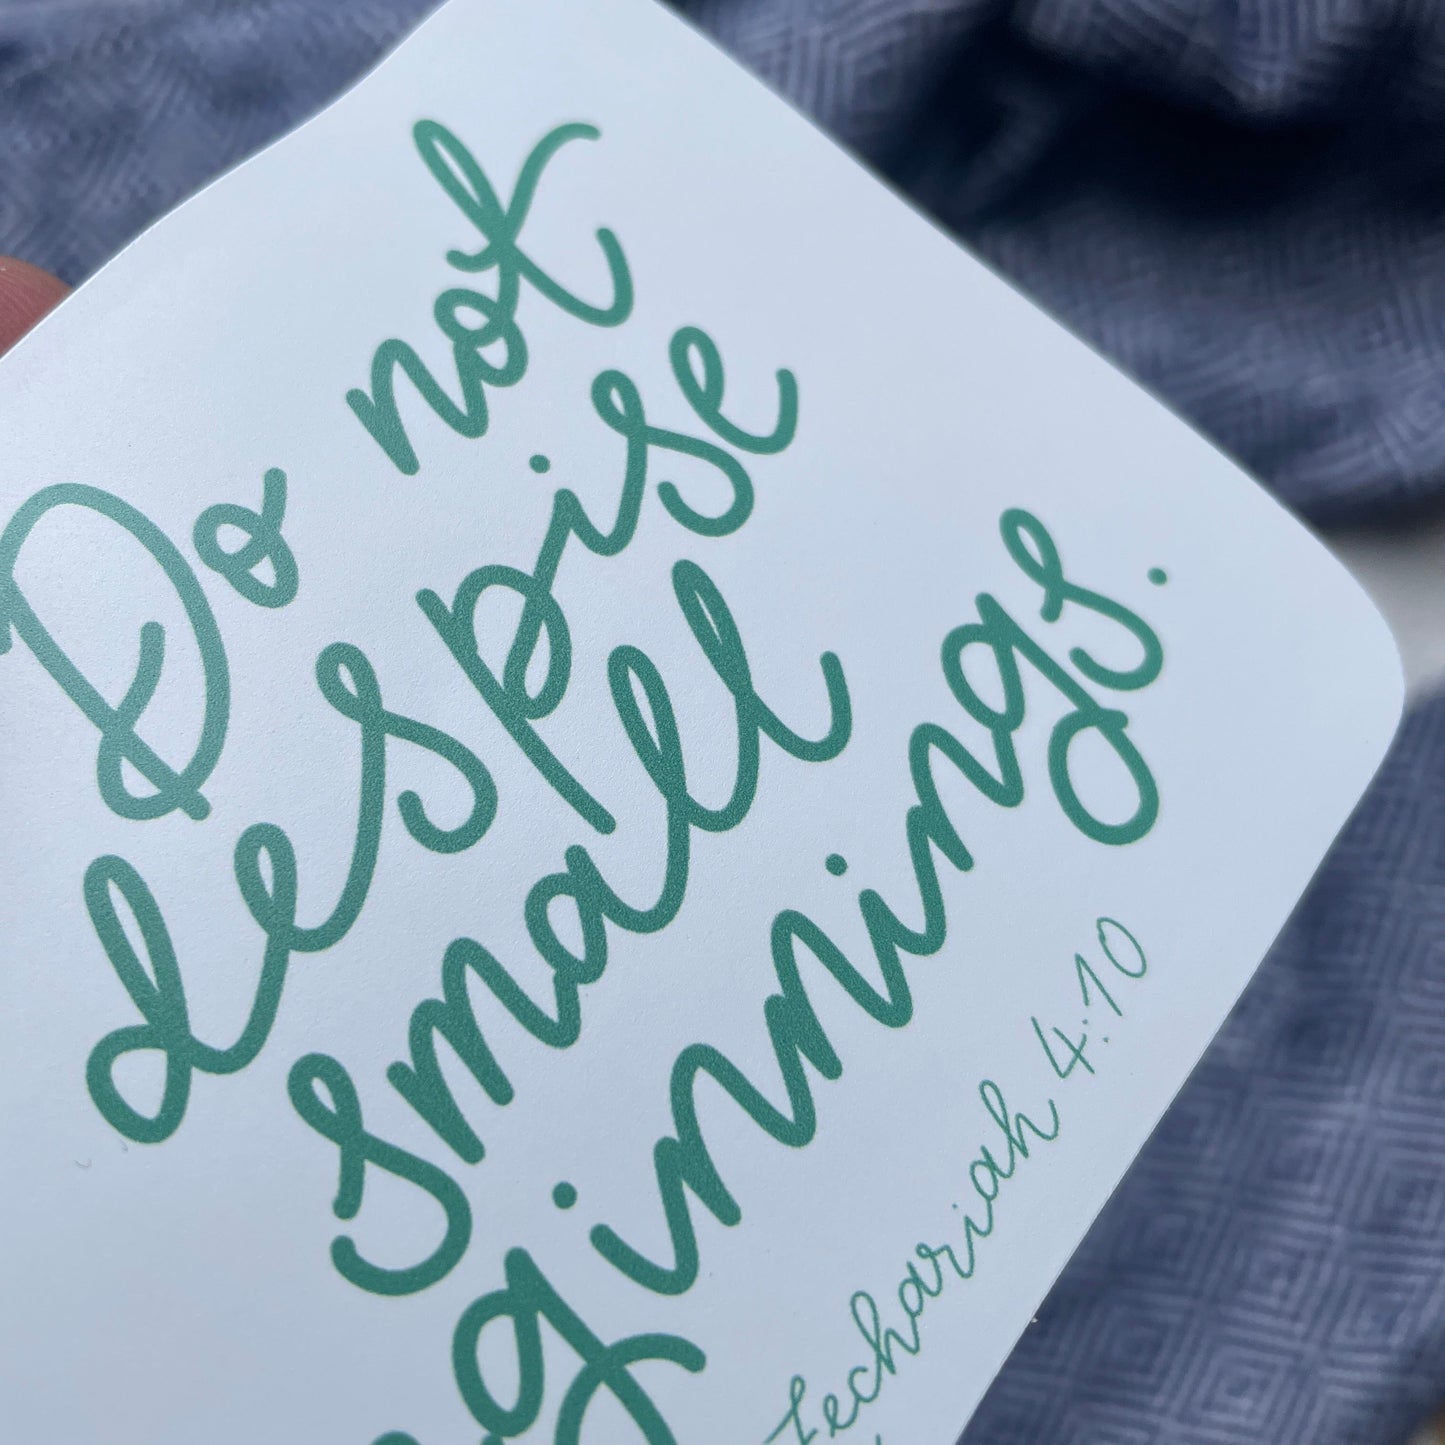 Do not
despise
small
beginnings.
Zechariah 4:10